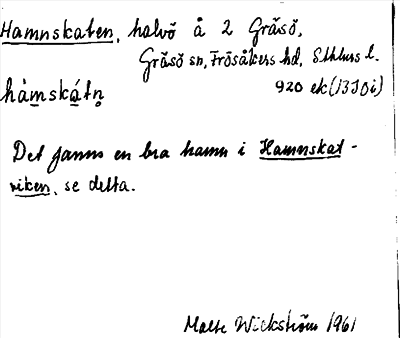 Hamnskaten, halvö å 2 Gräsö,
Gräsö sn, Frösåkers hd, Sthlms l.
hàmskátn̥ 920 ek (13J0i)
Det fanns en bra hamn i Hamnskat-
viken, se detta.
Malte Wickström 1961